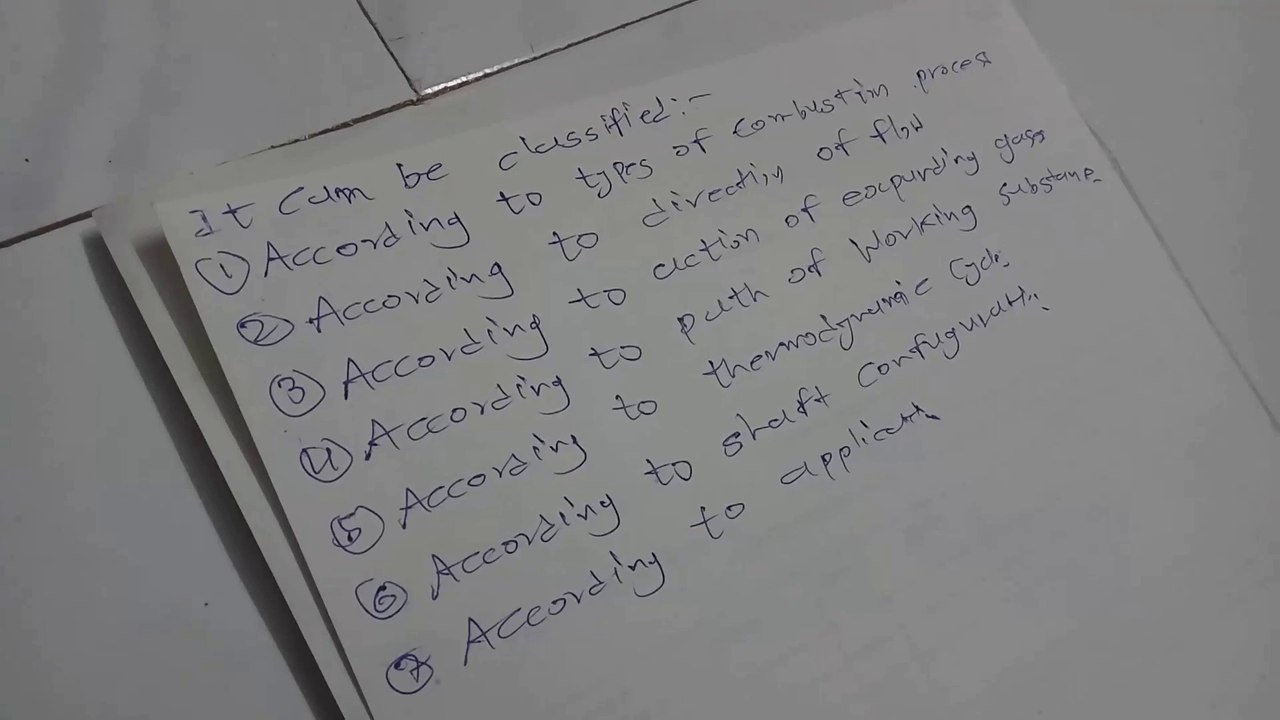 It can be classified:-
① According to types of combustion process
② According to direction of flow
③ According to action of expanding gases
④ According to path of working substance
⑤ According to thermodynamic cycle
⑥ According to shaft configuration
⑦ According to application